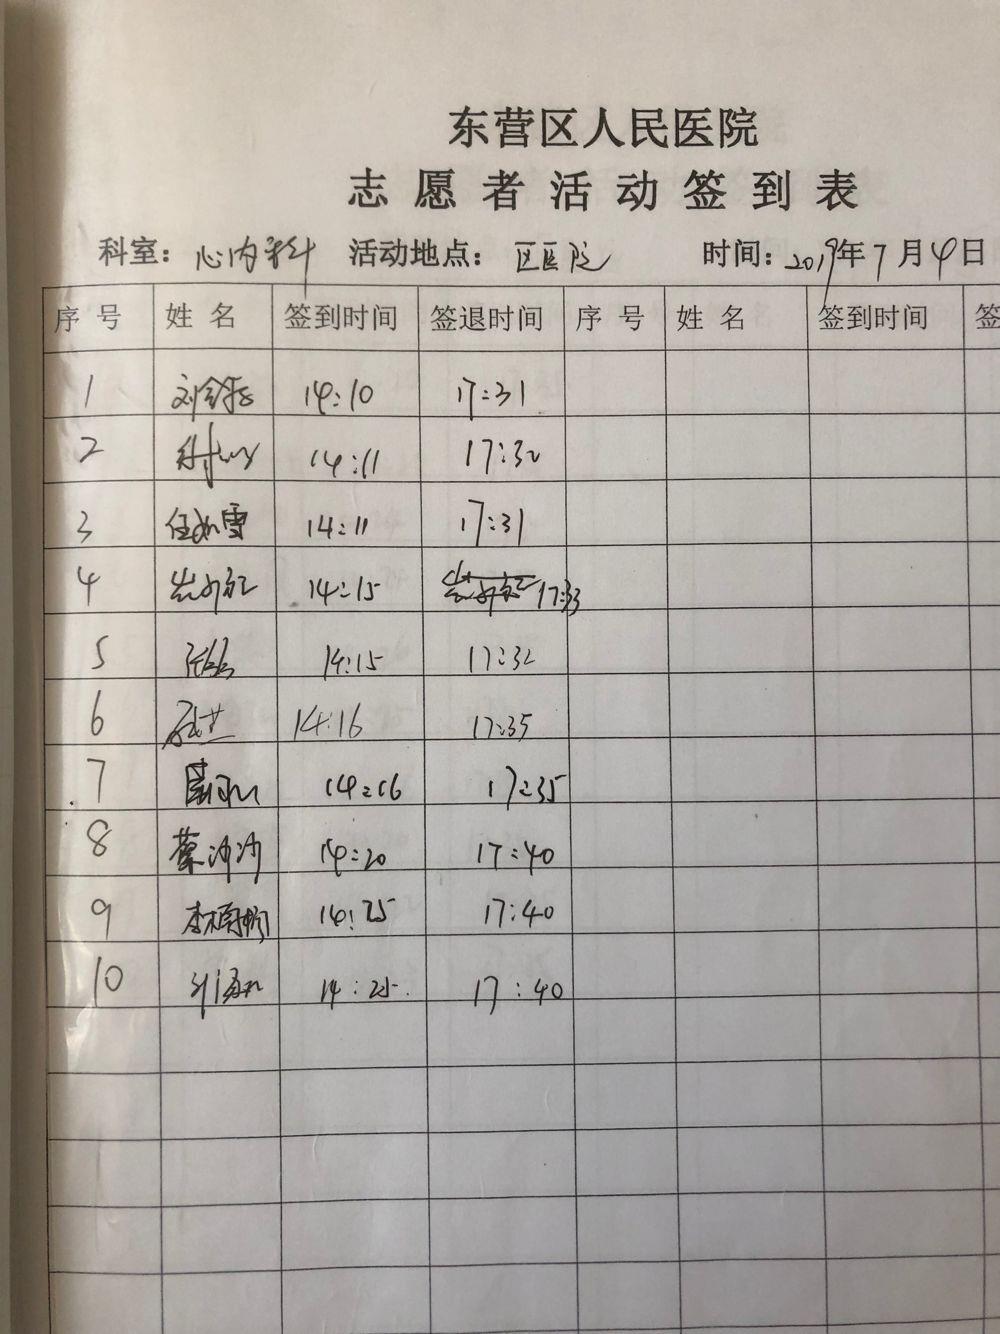 东营区人民医院
志愿者活动签到表
科室：心内科 活动地点：区医院 时间：2019年7月4日
序号 姓名 签到时间 签退时间 序号 姓名 签到时间 签
1 14:10 17:31
2 14:11 17:32
3 任如雪 14:11 17:31
4 14:15 17:33
5 14:15 17:32
6 14:16 17:35
7 14:16 17:35
8 14:20 17:40
9 14:25 17:40
10 14:25 17:40